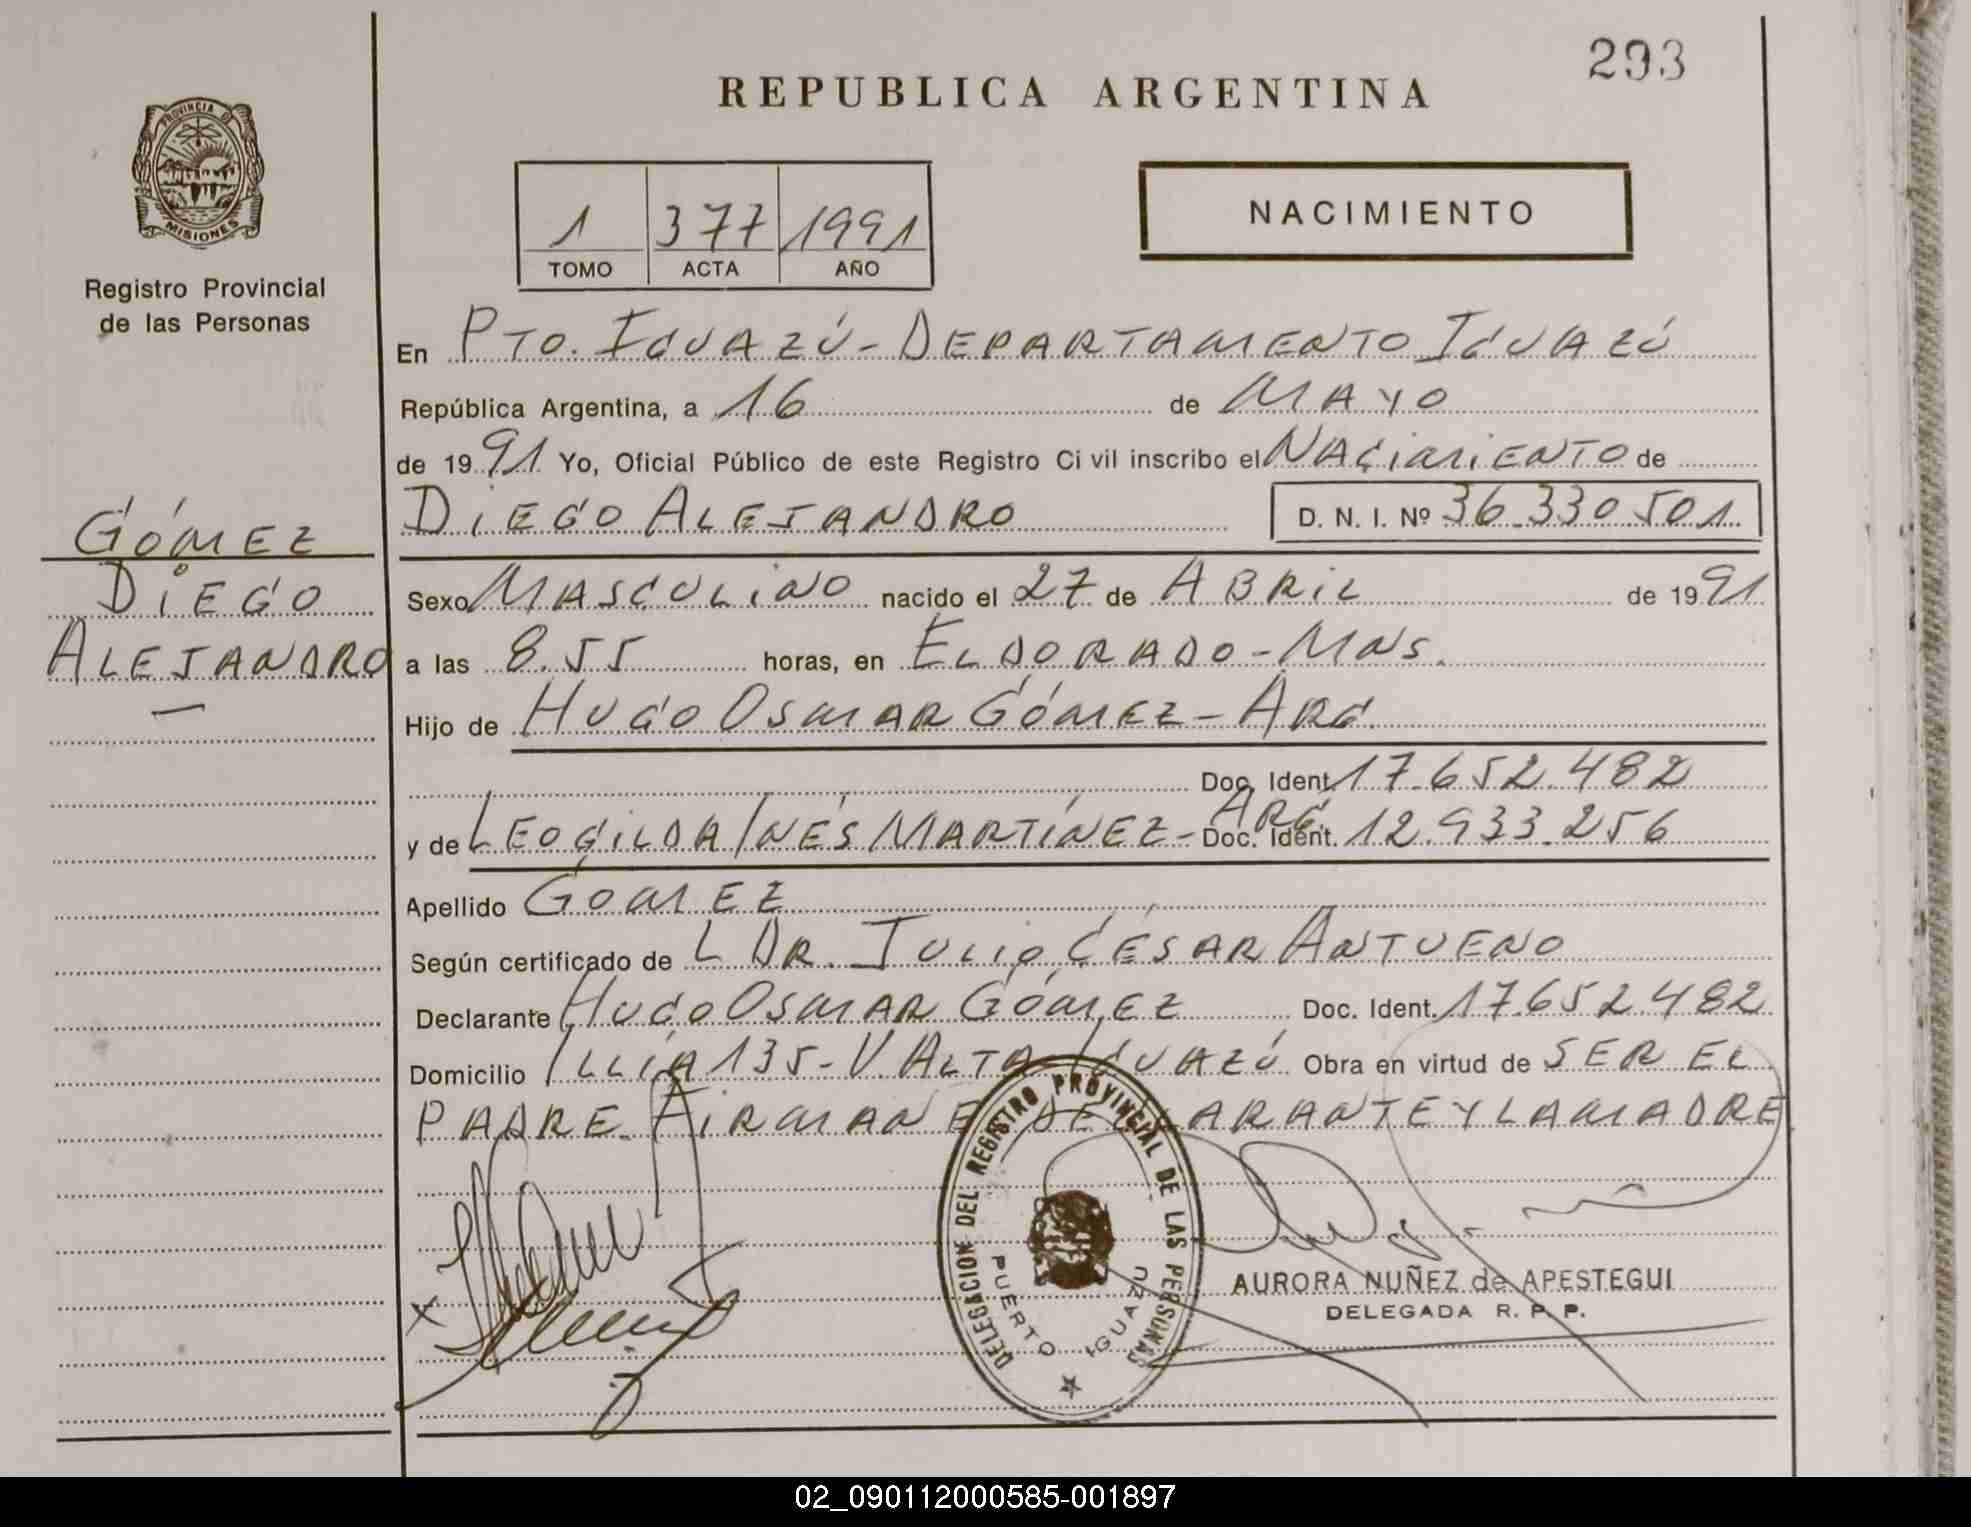 293
REPUBLICA ARGENTINA
PROVINCIA DE
MISIONES
Registro Provincial
de las Personas
1 377 1991
TOMO ACTA AÑO
NACIMIENTO
En PTO. IGUAZÚ - DEPARTAMENTO IGUAZÚ
República Argentina, a 16 de MAYO
de 1991 Yo, Oficial Público de este Registro Civil inscribo el NACIMIENTO de
DIEGO ALEJANDRO D. N. I. Nº 36.330.501.
GÓMEZ
DIEGO
ALEJANDRO
Sexo MASCULINO nacido el 27 de ABRIL de 1991
a las 8.55 horas, en ELDORADO - MNS.
Hijo de HUGO OSMAR GÓMEZ - ARG.
Doc. Ident. 17.652.482
y de LEOGILDA INÉS MARTÍNEZ - ARG. Doc. Ident. 12.933.256
Apellido GOMEZ
Según certificado de L DR. JULIO CÉSAR ANTUENO
Declarante HUGO OSMAR GÓMEZ Doc. Ident. 17.652.482
Domicilio ILLÍA 135 - V. ALTA IGUAZÚ Obra en virtud de SER EL
PADRE. FIRMAN EL DECLARANTE Y LA MADRE
DELEGACION DEL REGISTRO PROVINCIAL DE LAS PERSONAS
PUERTO IGUAZU
AURORA NUÑEZ de APESTEGUI
DELEGADA R. P. P.
02_090112000585-001897